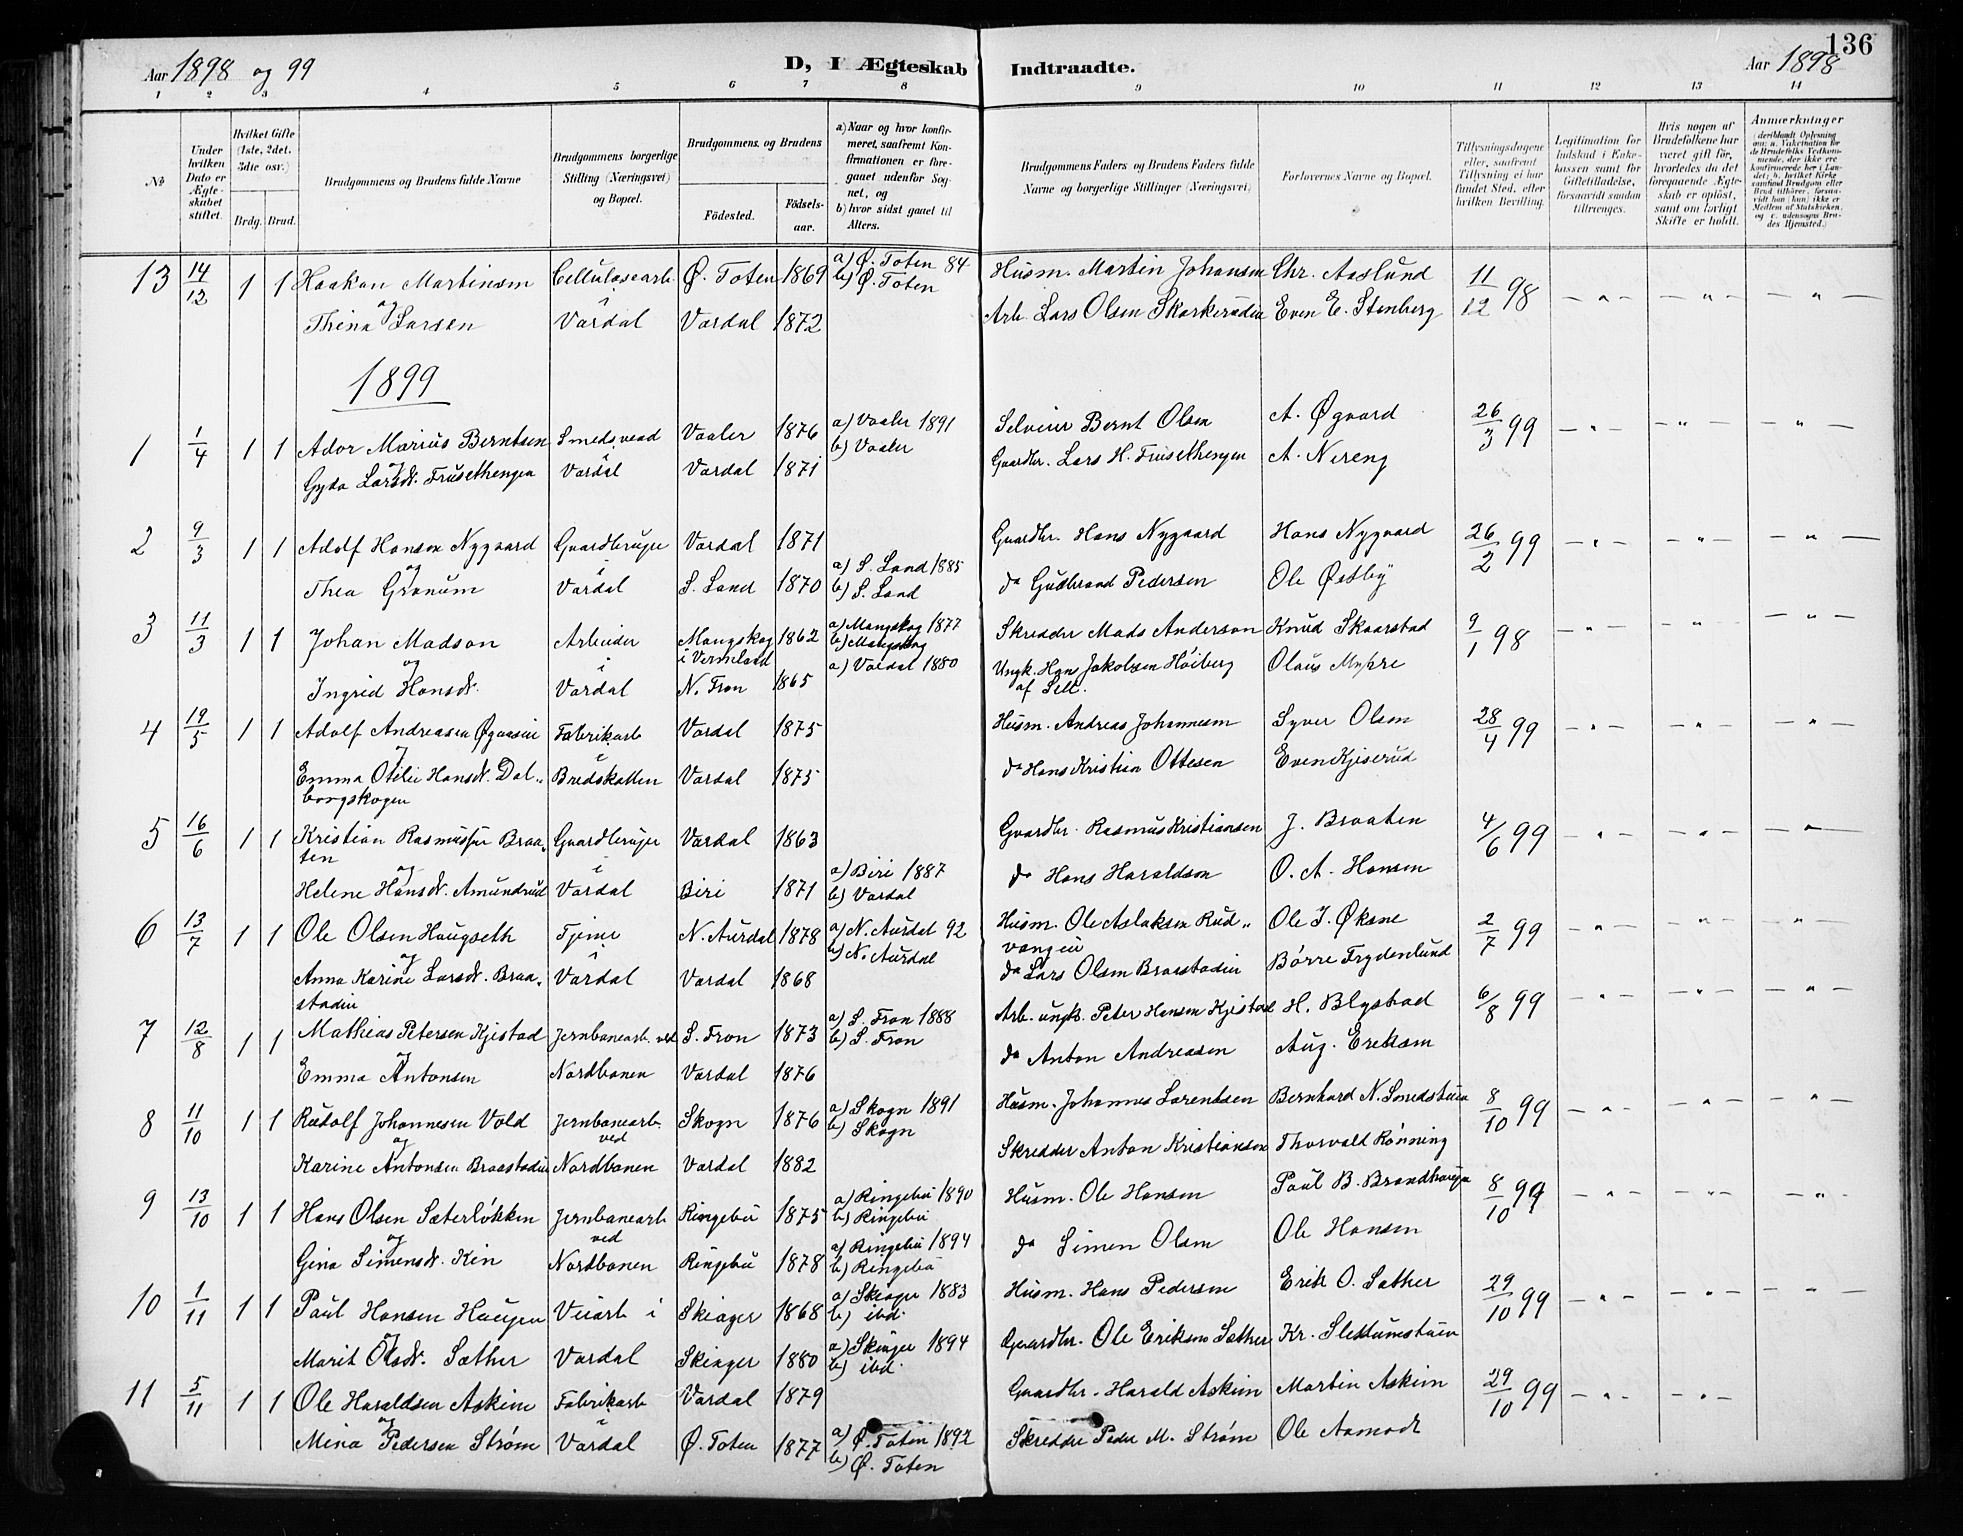 136
Aar 1898 og 99
D, I Ægteskab Indtraadte.
Aar 1898
1 2 3 4 5 6 7 8 9 10 11 12 13 14
No.
Under hvilken Dato er Ægteskabet stiftet.
Hvilket Gifte (1ste, 2det, 3die osv.)
Brdg. Brud.
Brudgommens og Brudens fulde Navne
Brudgommens borgerlige Stilling (Næringsvei) og Bopæl.
Brudgommens og Brudens
Födested. Födsels-aar.
a) Naar og hvor konfirmeret, saafremt Konfirmationen er foregaaet udenfor Sognet, og
b) hvor sidst gaaet til Alters.
Brudgommens Faders og Brudens Faders fulde Navne og borgerlige Stillinger (Næringsvei)
Forlovernes Navne og Bopæl.
Tillysningsdagene eller, saafremt Tillysning ei har fundet Sted, efter hvilken Bevilling.
Legitimation for Indskud i Enkekassen samt for Giftetilladelse, forsaavidt saadan tiltrænges.
Hvis nogen af Brudefolkene har været gift för, hvorledes da det foregaaende Ægteskab er oplöst, samt om lovligt Skifte er holdt.
Anmærkninger
13 14/12 1 1 Haakan Martinsen Cellulosearb. Ø. Toten 1869 a) Ø. Toten 84 b) Ø. Toten Husm. Martin Johansen Chr. Aaslund 11/12 98 - " - - " - - " -
og i
Thina Larsen Vardal Vardal 1872 Arb. Lars Olsen Skarkerudn Even E. Stenberg
1899
1 1/4 1 1 Ador Marius Berntsen Smedsvend Vaaler 1876 a) Vaaler 1891 b) Vaaler Selveier Bernt Olsen A. Øgaard 26/3 99 - " - - " - - " -
og i
Gyda Larsdr. Frusethengen Vardal Vardal 1871 Gaardbr. Lars H. Frusethengen A. Nereng
2 9/3 1 1 Adolf Hansen Nygaard Gaardbruger Vardal 1871 Gaardbr. Hans Nygaard Hans Nygaard 26/2 99 - " - - " - - " -
og i
Thea Granum Vardal S. Land 1870 a) S. Land 1885 b) S. Land do Gudbrand Pedersen Ole Østby
3 11/3 1 1 Johan Madson Arbeider Mangskog i Vermeland 1862 a) Mangskog 1877 b) Mangskog Skredder Mads Anderson Knud Skaarstad 9/1 98 - " - - " - - " -
og i
Ingrid Hansdr. Vardal N. Fron 1865 a) Vardal 1880 Ungk. Hans Jakobsen Høiberg af Sell. Olaus Myhre
4 19/5 1 1 Adolf Andreasen Øgaasen Fabrikarb Vardal 1875 Husm. Andreas Johannesen Syver Olsen 28/4 99 - " - - " - - " -
og i
Emma Otilie Hansdr. Dalborgskogen Bredskallen Vardal 1875 do Hans Kristian Ottesen Even Kjiserud
5 16/6 1 1 Kristian Rasmussen Braaten Gaardbruger Vardal 1863 Gaardbr. Rasmus Kristiansen J. Braaten 4/6 99 - " - - " - - " -
og i
Helene Hansdr. Amundrud Vardal Biri 1871 a) Biri 1887 b) Vardal do Hans Haraldsen O. A. Hansen
6 13/7 1 1 Ole Olsen Haugseth Tjener N. Aurdal 1878 a) N. Aurdal 92 b) N. Aurdal Husm. Ole Aslaksen Rudvangen Ole J. Øksne 2/7 99 - " - - " - - " -
og i
Anna Karine Larsdr. Braastadin Vardal Vardal 1868 do Lars Olsen Braastadin Børre Frydenlund
7 12/8 1 1 Mathias Petersen Kjistad Jernbanearb. ved S. Fron 1873 a) S. Fron 1888 b) S. Fron Arb. ungk. Peter Hansen Kjistad H. Blystad 6/8 99 - " - - " - - " -
og
Emma Antonsen Nordbanen Vardal 1876 do Anton Andreasen Aug. Eriksen
8 11/10 1 1 Rudolf Johannesen Vold Jernbanearb. Skogn 1876 a) Skogn 1891 b) Skogn Husm. Johannes Lorentsen Bernhard N. Smedstuen 8/10 99 - " - - " - - " -
og ved
Karine Antonsen Braastadin Nordbanen Vardal 1882 Skredder Anton Kristiansen Thorvald Rönning
9 13/10 1 1 Hans Olsen Sæterløkken Jernbanearb Ringebu 1875 a) Ringebu 1890 b) Ringebu Husm. Ole Hansen Paul B. Brandhaugen 8/10 99 - " - - " - - " -
og ved
Gina Simensdr. Kin Nordbanen Ringebu 1878 a) Ringebu 1894 b) Ringebu do Simen Olsen Ole Hansen
10 1/11 1 1 Paul Hansen Haugen Veiarb i Skiager 1868 a) Skiager 1883 b) ibd. Husm. Hans Pedersen Erik O. Sæther 29/10 99 - " - - " - - " -
og
Marit Olsdr. Sæther Vardal Skiager 1880 a) Skiager 1894 b) ibd. Gaardbr. Ole Eriksen Sæther Kr. Slettumstuen
11 5/11 1 1 Ole Haraldsen Askim Fabrikarb Vardal 1879 Gaardbr. Harald Askim Martin Askim 29/10 99 - " - - " -
og i
Mina Pedersen Strøm Vardal Ø. Toten 1877 a) Ø. Toten 1892 b) Ø. Toten Skredder Peder M. Strøm Ole Aamodt